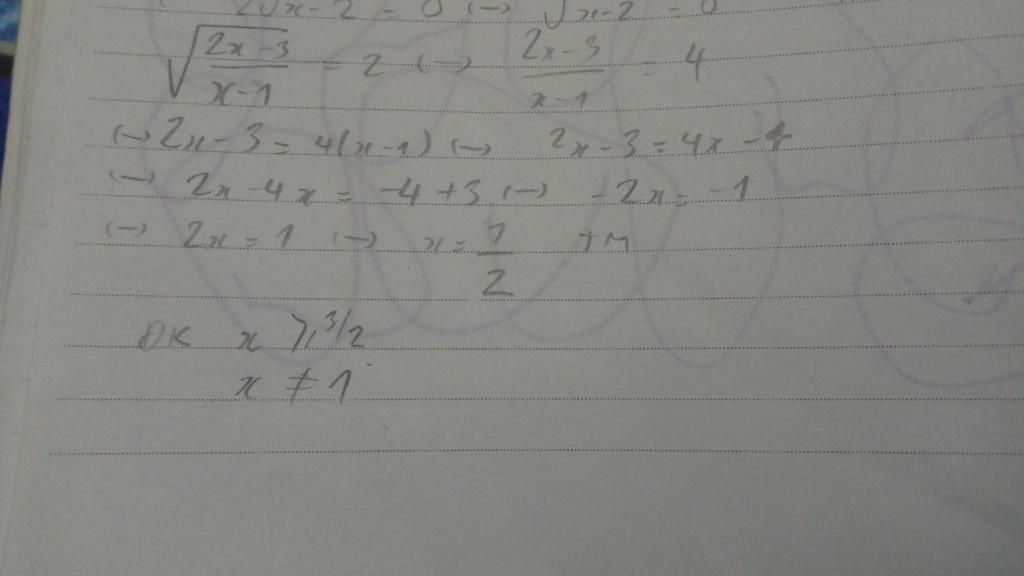 2√x-2 = 0 (→) √x-2 = 0
√(2x-3)/(x-1) = 2 (→) (2x-3)/(x-1) = 4
(→) 2x-3 = 4(x-1) (→) 2x-3 = 4x-4
(→) 2x-4x = -4+3 (→) -2x = -1
(→) 2x = 1 (→) x = 1/2 +M
ĐK x ≥ 3/2
x ≠ 1